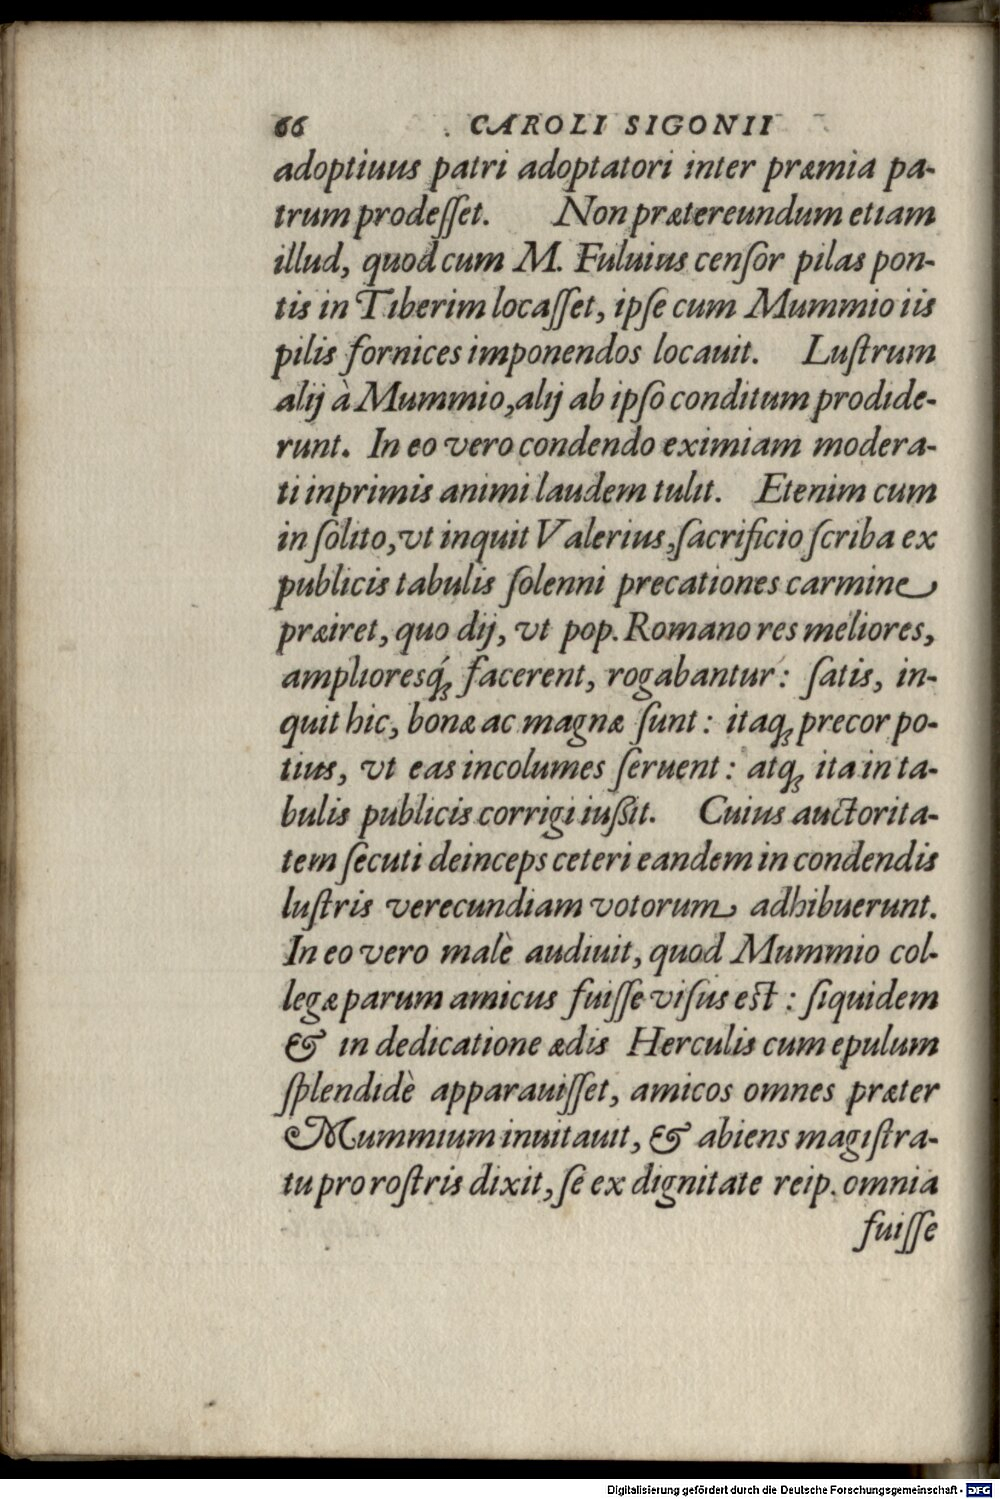 66 CAROLI SIGONII
adoptiuus patri adoptatori inter præmia pa-
trum prodeſſet. Non prætereundum etiam
illud, quod cum M. Fuluius cenſor pilas pon-
tis in Tiberim locaſſet, ipſe cum Mummio iis
pilis fornices imponendos locauit. Luſtrum
alij à Mummio, alij ab ipſo conditum prodide-
runt. In eo vero condendo eximiam modera-
ti inprimis animi laudem tulit. Etenim cum
in ſolito, vt inquit Valerius, ſacrificio ſcriba ex
publicis tabulis ſolenni precationes carmine
præiret, quo dij, vt pop. Romano res meliores,
amplioresq́ꝫ facerent, rogabantur: ſatis, in-
quit hic, bonæ ac magnæ ſunt: itaqꝫ precor po-
tius, vt eas incolumes ſeruent: atqꝫ ita in ta-
bulis publicis corrigi iußit. Cuius auctorita-
tem ſecuti deinceps ceteri eandem in condendis
luſtris verecundiam votorum adhibuerunt.
In eo vero malè audiuit, quod Mummio col-
legæ parum amicus fuiſſe viſus eſt: ſiquidem
& in dedicatione ædis Herculis cum epulum
ſplendidè apparauiſſet, amicos omnes præter
Mummium inuitauit, & abiens magiſtra-
tu pro roſtris dixit, ſe ex dignitate reip. omnia
fuiſſe
Digitalisierung gefördert durch die Deutsche Forschungsgemeinschaft - DFG